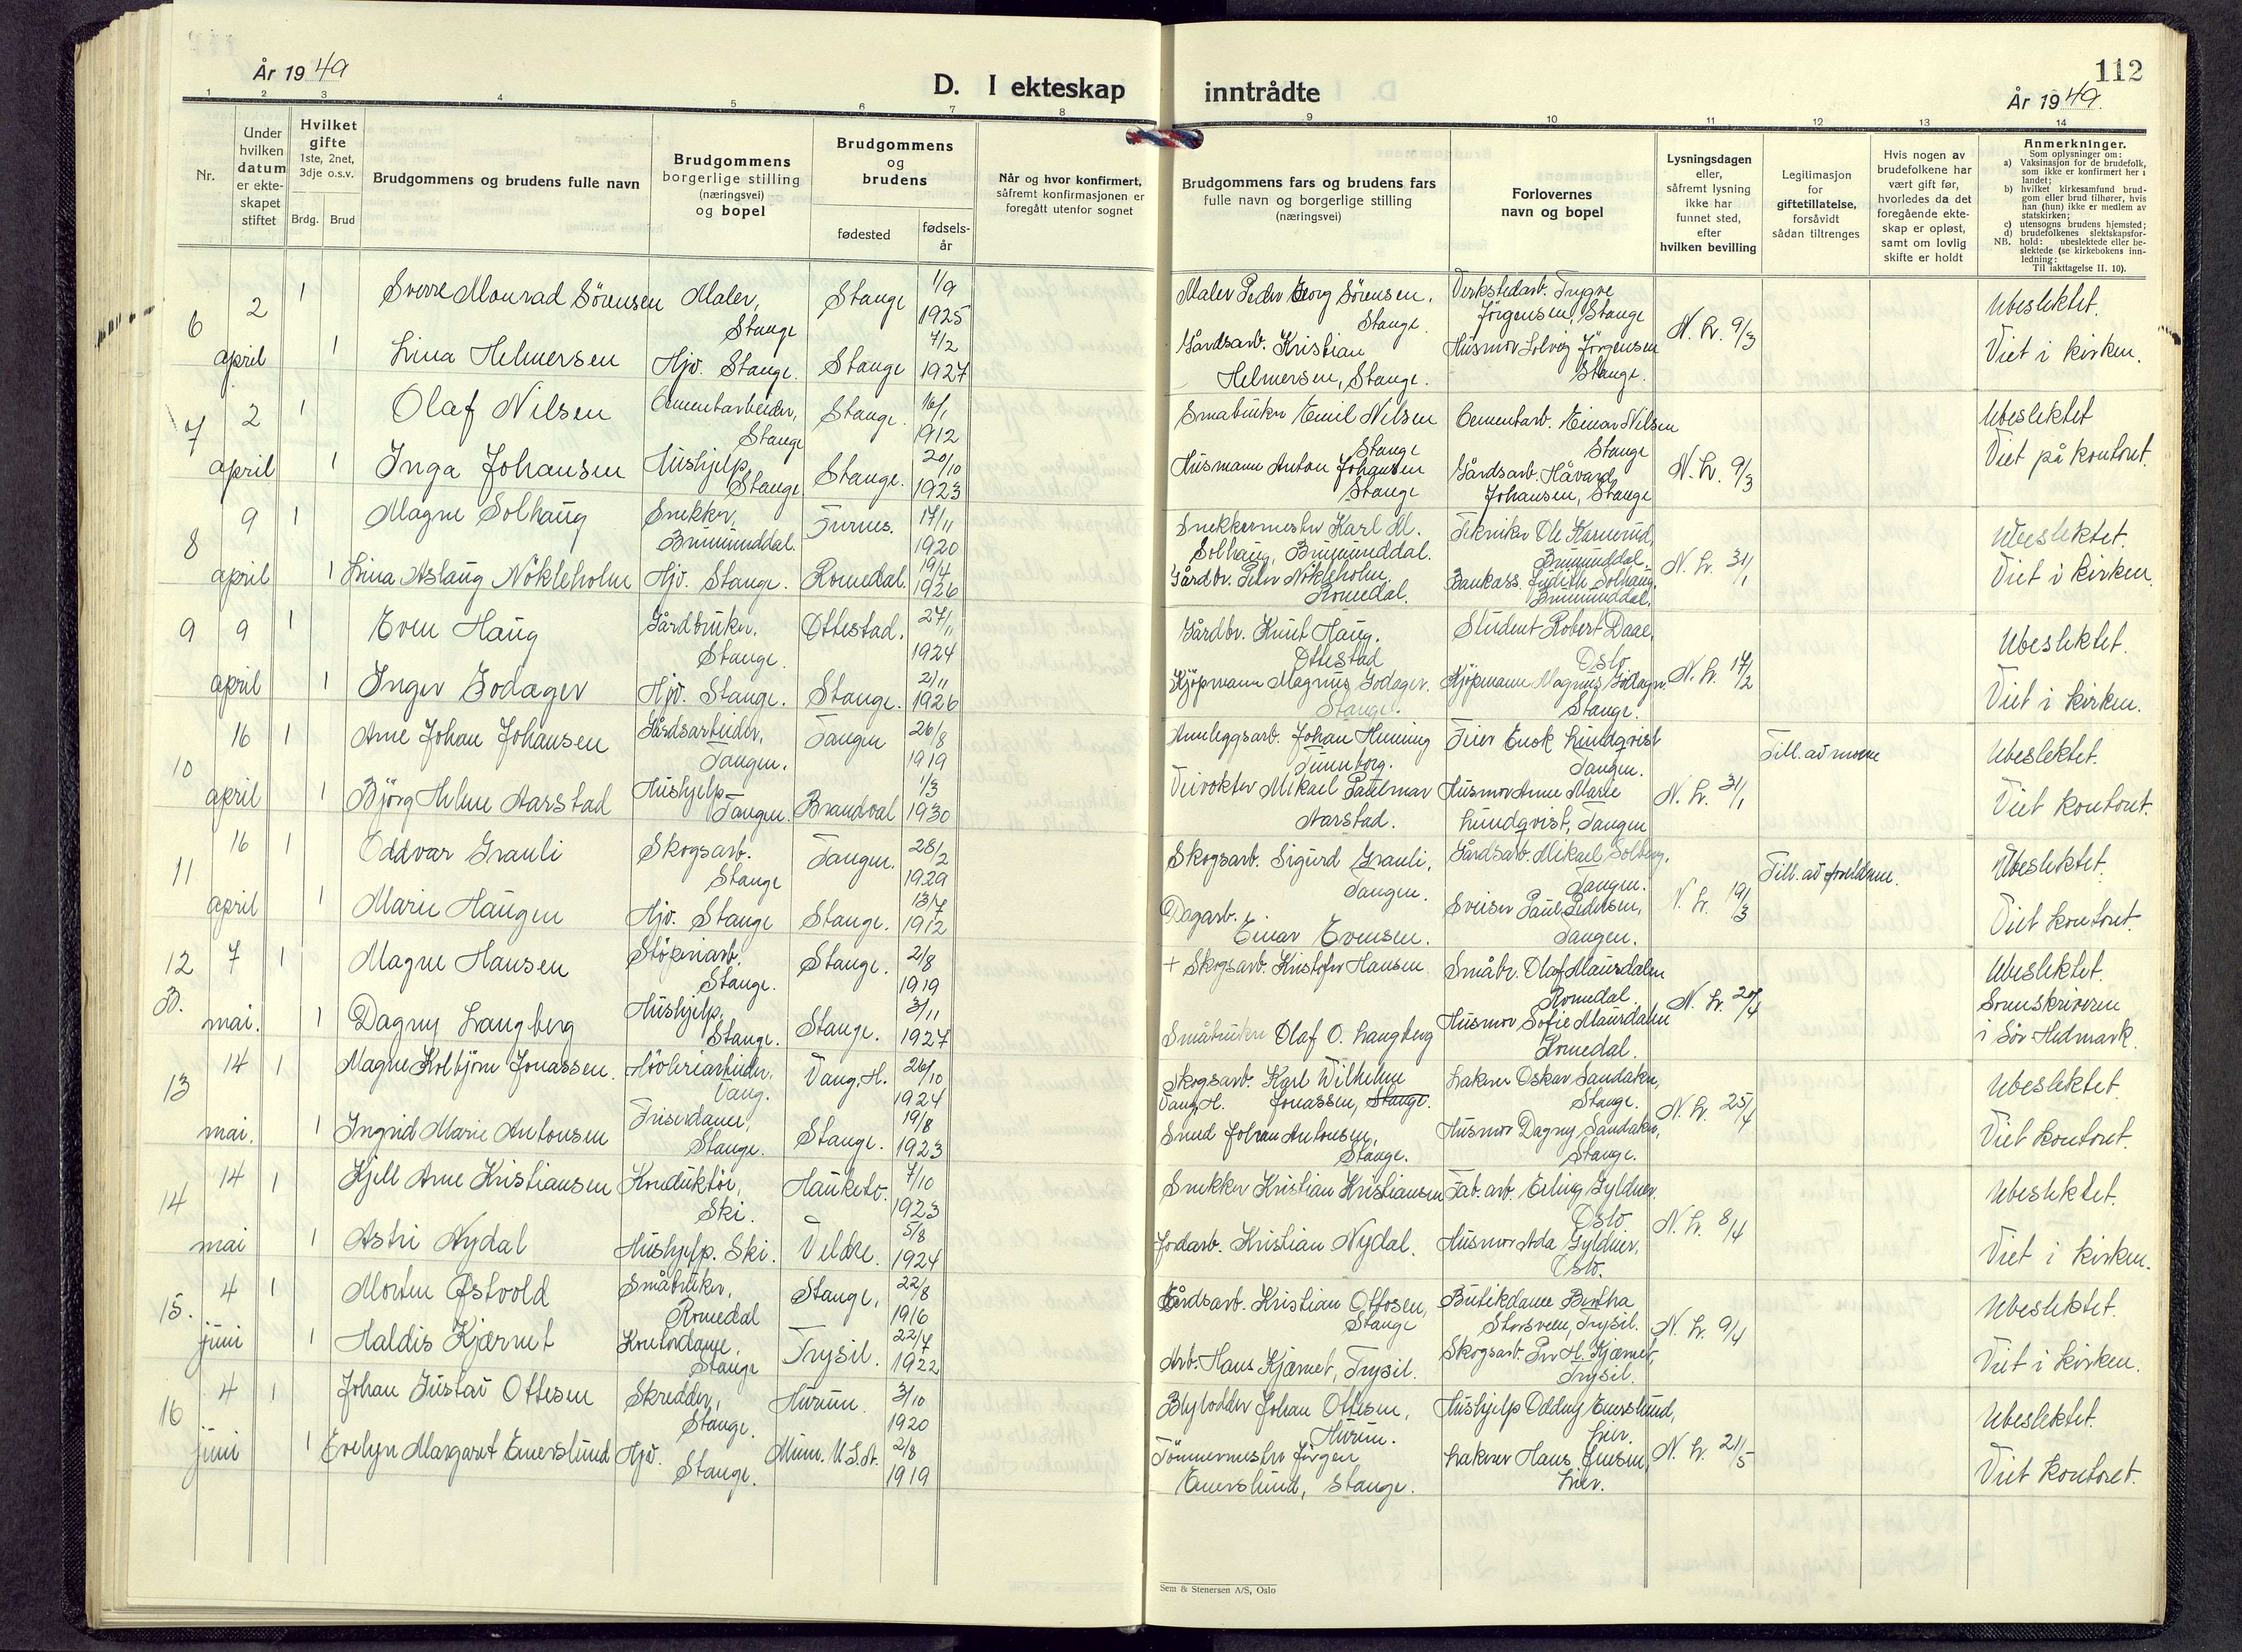 År 1949
D. I ekteskap inntrådte
112
År 1949.
1 2 3 4 5 6 7 8 9 10 11 12 13 14
Nr.
Under hvilken datum er ekteskapet stiftet
Hvilket gifte
1ste, 2net, 3dje o.s.v.
Brdg. Brud
Brudgommens og brudens fulle navn
Brudgommens borgerlige stilling (næringsvei) og bopel
Brudgommens og brudens
fødested
fødselsår
Når og hvor konfirmert, såfremt konfirmasjonen er foregått utenfor sognet
Brudgommens fars og brudens fars fulle navn og borgerlige stilling (næringsvei)
Forlovernes navn og bopel
Lysningsdagen eller, såfremt lysning ikke har funnet sted, efter hvilken bevilling
Legitimasjon for giftetillatelse, forsåvidt sådan tiltrenges
Hvis nogen av brudefolkene har vært gift før, hvorledes da det foregående ekteskap er opløst, samt om lovlig skifte er holdt
Anmerkninger.
Som oplysninger om:
a) Vaksinasjon for de brudefolk, som ikke er konfirmert her i landet;
b) hvilket kirkesamfund brudgom eller brud tilhører, hvis han (hun) ikke er medlem av statskirken;
c) utensogns brudens hjemsted;
d) brudefolkenes slektskapsforhold: ubeslektede eller beslektede (se kirkebokens innledning:
NB.
Til iakttagelse II. 10).
6 2 april 1 Sverre Monrad Sörensen Maler, Stange Stange 1/9 1925 Maler Peder Georg Sörensen, Stange. Verkstedarb. Trygve Jörgensen, Stange N. Lr. 9/3 Ubeslektet.
1 Lina Helmersen Hjv. Stange. Stange 7/2 1927 Gårdsarb. Kristian Helmersen, Stange. Husmor Solveig Jörgensen Stange. Viet i kirken.
7 2 april 1 Olaf Nilsen Cementarbeider, Stange Stange. 16/1 1912 Småbruker Emil Nilsen Stange Cementarb. Einar Nilsen Stange N. Lr. 9/3 Ubeslektet
1 Inga Johansen Hushjelp, Stange Stange. 20/10 1923 Husmann Anton Johansen Stange Gårdsarb. Håvard Johansen, Stange Viet på kontoret.
8 9 april 1 Magne Solhaug Snekker, Brumunddal. Furnes. 17/11 1920 Snekkermester Karl M. Solhaug, Brumunddal. Tekniker Ole Kamerud, Brumunddal. N. Lr. 31/1 Ubeslektet.
1 Lina Aslaug Nökleholm Hjv. Stange. Romedal. 19/4 1926 Gårdbr. Peter Nökleholm, Romedal. Bankass. Judith Solhaug, Brumunddal. Viet i kirken.
9 9 april 1 Even Haug Gårdbruker. Stange. Ottestad. 27/11 1924 Gårdbr. Knut Haug. Ottestad Student Robert Daae, Oslo N. Lr. 17/2 Ubeslektet.
1 Inger Godager Hjv. Stange. Stange. 2/11 1926 Kjöpmann Magnus Godager. Stange. Kjöpmann Magnus Godager. Stange. Viet i kirken.
10 16 april 1 Arne Johan Johansen Gårdsarbeider, Tangen. Tangen 26/8 1919 Annleggsarb. Johan Henning Feier Enok Lundqvist Tangen. N. Lr. 31/1 Till. av Ubeslektet.
1 Björg Helene Aarstad Hushjelp Tangen. Brandval 1/3 1930 Veivokter Mikael Aarstad. Husmor Anne Marie Lundqvist, Tangen Viet kontoret.
11 16 april 1 Oddvar Grauli Skogsarb. Stange Tangen. 28/2 1929 Skogsarb. Sigurd Grauli, Tangen. Gårdsarb. Mikael Solberg, Tangen. N. Lr. 19/3 Till. av foreldrene. Ubeslektet.
1 Marie Haugen Hjv. Stange Stange. 13/7 1912 Dagarb. Einar Evensen. Sveiser Paul Pedersen, Tangen. Viet kontoret.
12 7 mai. 1 Magne Hansen Støperiarb. Stange. Stange. 2/8 1919 + Skogsarb. Kristofer Hansen Småbr. Olaf Maurdalen Romedal. N. Lr. 20/4 Ubeslektet.
B. 1 Dagny Langberg Hushjelp, Stange. Stange. 3/11 1927 Småbruker Olaf O. Langberg Husmor Sofie Maurdalen Romedal. Sorenskriveren i Sör Hedmark.
13 14 mai. 1 Magne Kolbjörn Jonassen. Hövleriarbeider, Vang. Vang, H. 26/10 1924 Skogsarb. Karl Wilhelm Jonassen, Stange. Vang, H. Lakerer Oskar Sandaker, Stange. N. Lr. 25/4 Ubeslektet.
1 Ingrid Marie Antonsen Friserdame, Stange. Stange. 19/8 1923 Smed Johan Antonsen, Stange. Husmor Dagny Sandaker, Stange. Viet kontoret.
14 14 mai 1 Kjell Arne Kristiansen Konduktör, Ski. Hauketo. 7/10 1923 Snekker Kristian Kristiansen Fab. arb. Erling Gyldner. Oslo N. Lr. 8/4 Ubeslektet.
1 Astri Nydal Hushjelp. Ski. Veldre. 5/8 1924 Jordarb. Kristian Nydal. Husmor Ada Gyldner, Oslo. Viet i kirken.
15. 4 juni 1 Morten Østvold Småbruker, Romedal Stange, 22/8 1916 Gårdsarb. Kristian Ottosen, Stange Butikdame Bertha Storsveen, Trysil. N. Lr. 9/4 Ubeslektet.
1 Haldis Kjærnet Kontordame, Stange Trysil. 22/7 1922 Arb. Hans Kjærnet, Trysil. Skogsarb. Per H. Kjærnet, Trysil. Viet i kirken.
16 4 juni 1 Johan Gustav Ottesen Skredder, Stange. Hurum. 3/10 1920 Blylodder Johan Ottesen, Hurum. Hushjelp Oddny Emerslund, Lier. N. Lr. 21/5 Ubeslektet.
1 Evelyn Margaret Emerslund Hjv. Stange. Minn. U.S.A. 2/8 1919 Tömmermester Jörgen Emerslund, Stange. Lakerer Hans Jensen, Lier. Viet kontoret.
Sem & Stenersen A/S, Oslo